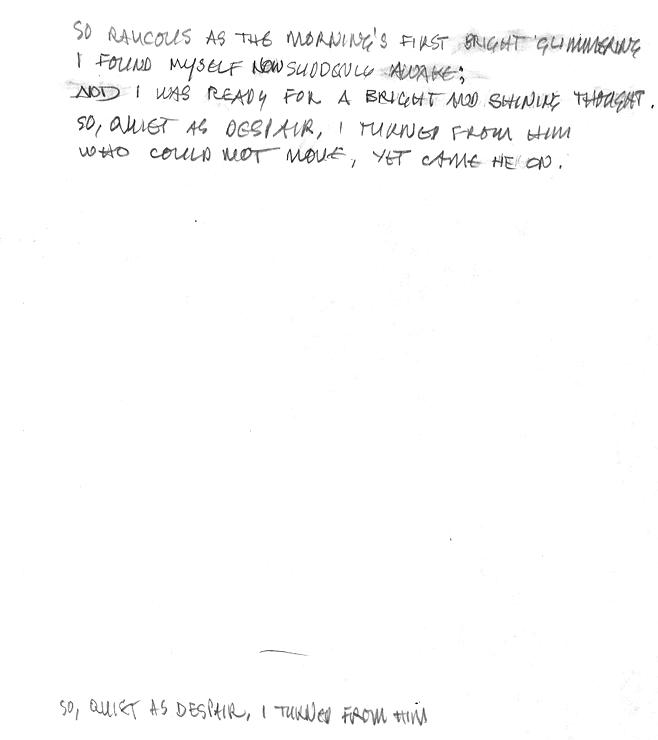 SO RAUCOUS AS THE MORNING'S FIRST BRIGHT GLIMMERING
I FOUND MYSELF NOW SUDDENLY AWAKE;
AND I WAS READY FOR A BRIGHT AND SHINING THOUGHT.
SO, QUIET AS DESPAIR, I TURNED FROM HIM
WHO COULD NOT MOVE, YET CAME HE ON.
SO, QUIET AS DESPAIR, I TURNED FROM HIM